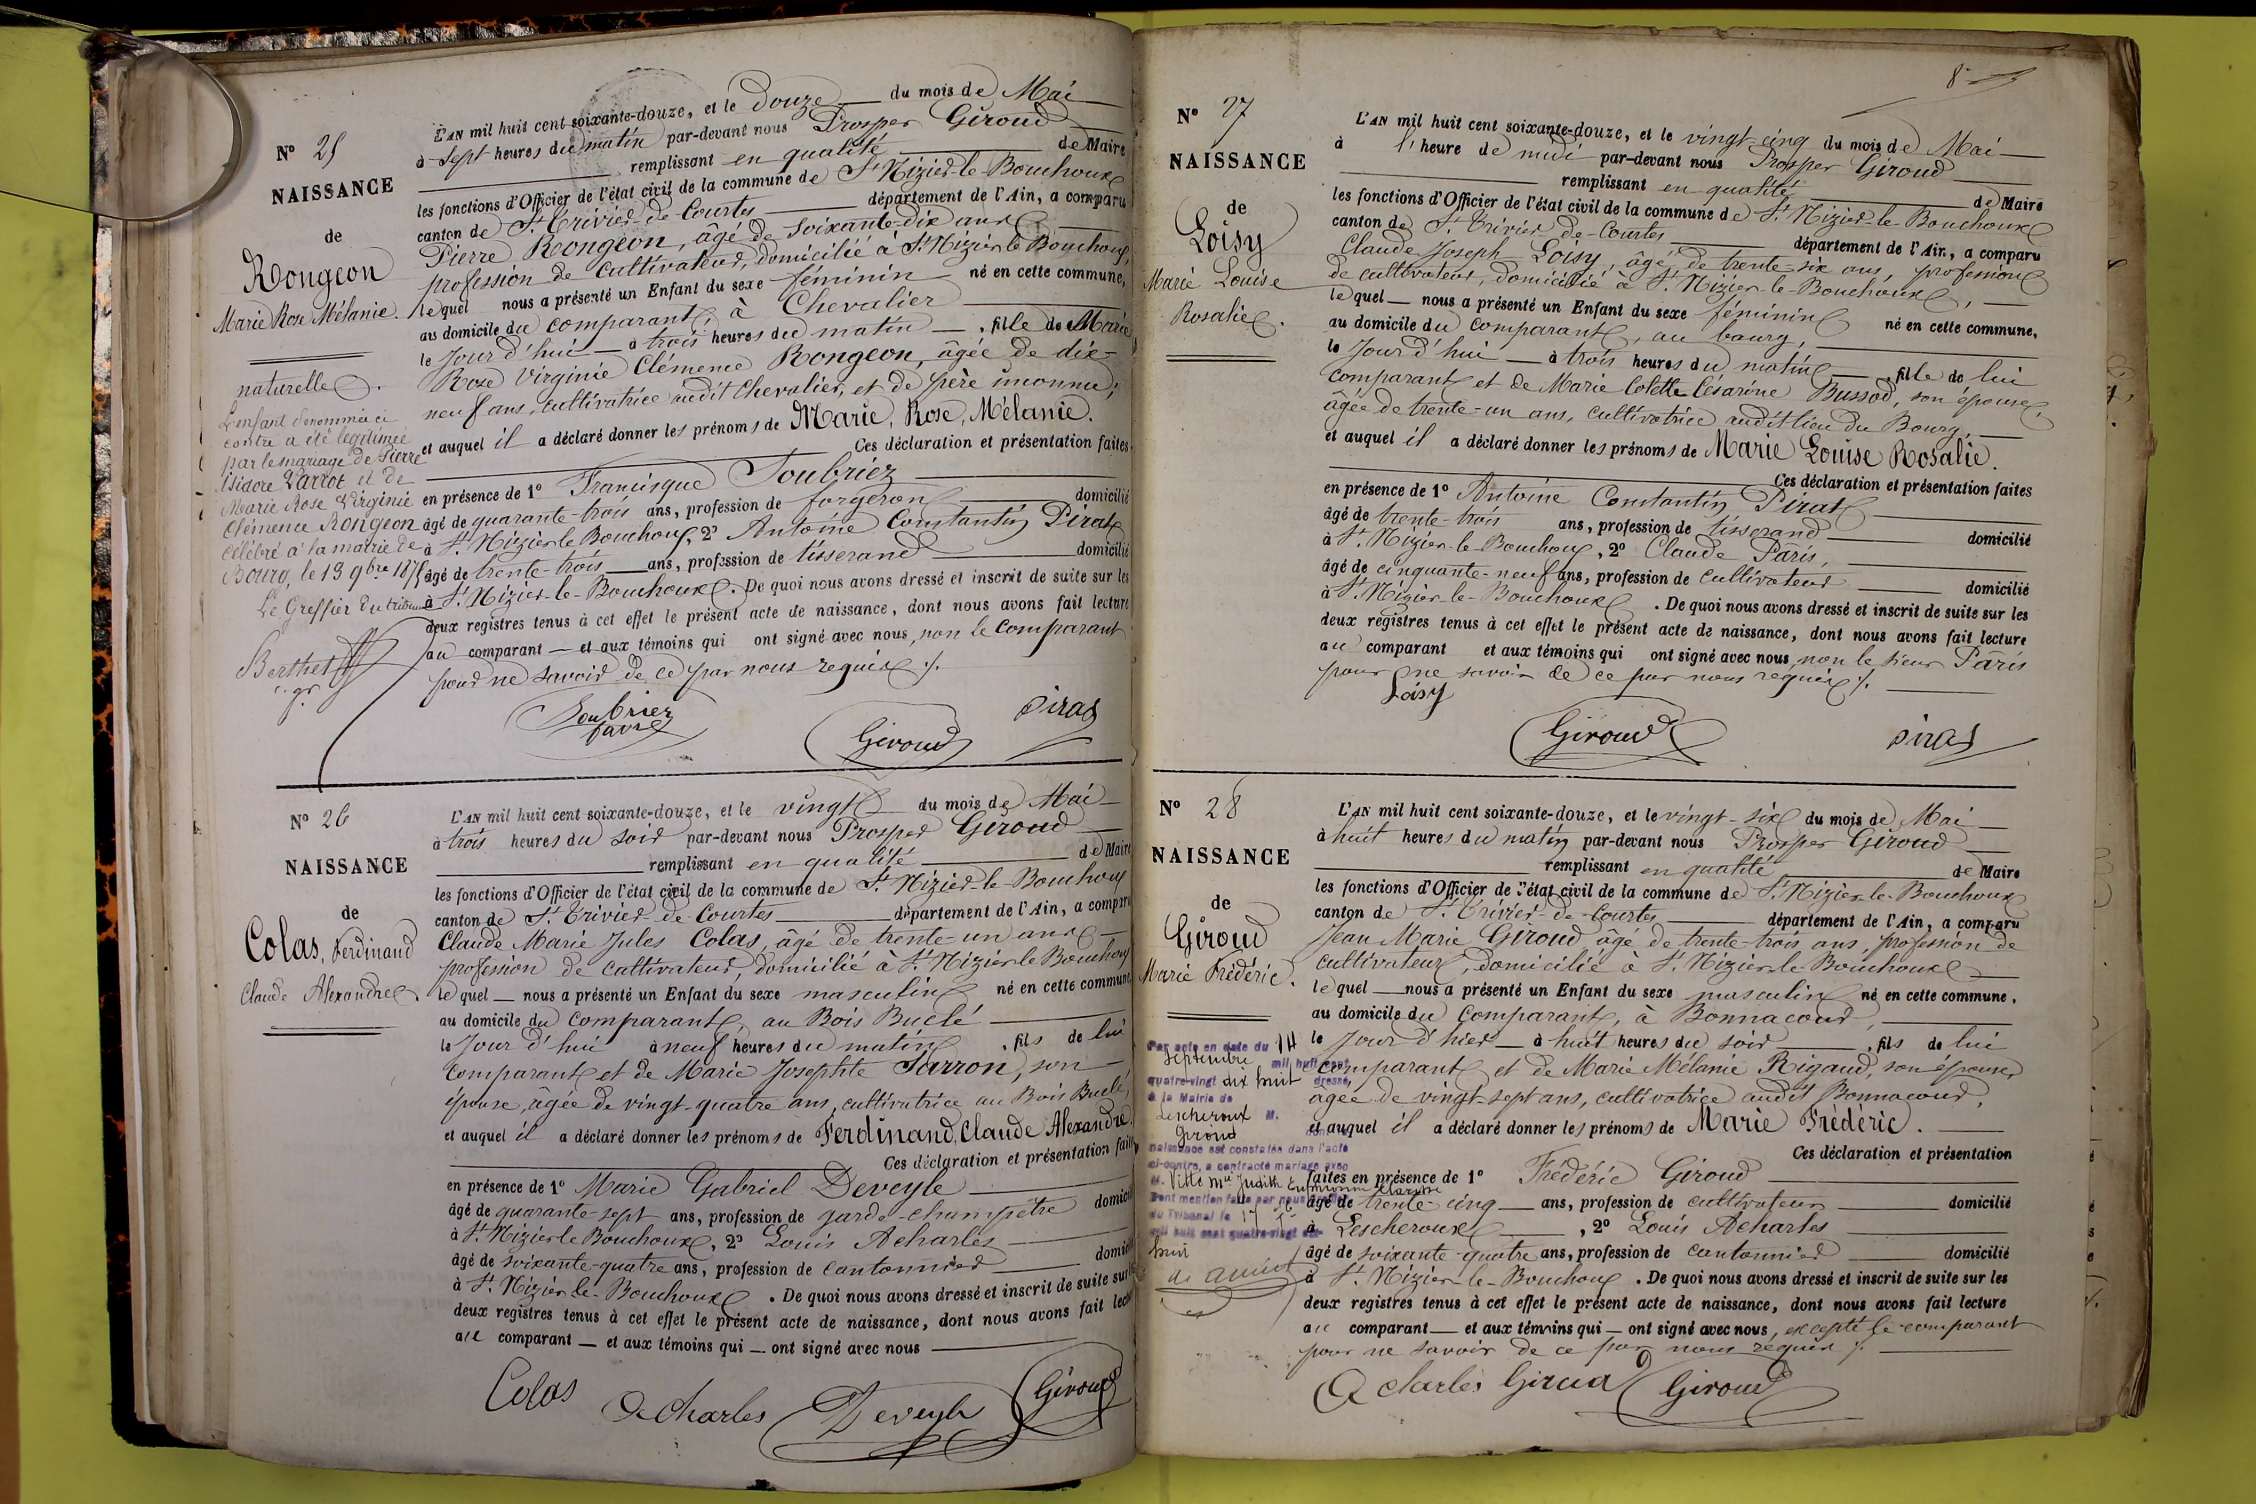 N° 25
NAISSANCE
de
Rongeon
Marie Rose Mélanie.
naturelle.
L'enfant dénommé ci
contre a été légitimée
par le mariage de Pierre
Isidore Parrot et de
Marie Rose Virginie
Clémence Rongeon
célébré à la mairie de
Bourg, le 13 9bre 1875
Le Greffier du tribunal
Berthet
c. gr
L'AN mil huit cent soixante-douze, et le douze du mois de Mai
à sept heures du matin par-devant nous Prosper Giroud
remplissant en qualité de Maire
les fonctions d'Officier de l'état civil de la commune de St Nizier-le-Bouchoux
canton de St Trivier-de-Courtes département de l'Ain, a comparu
Pierre Rongeon, âgé de soixante-dix ans
profession de cultivateur, domicilié à St Nizier le Bouchoux,
lequel nous a présenté un Enfant du sexe féminin né en cette commune,
au domicile du comparant, à Chevalier
le jour d'hui à trois heures du matin, fille de Marie
Rose Virginie Clémence Rongeon, âgée de dix-
neuf ans, cultivatrice audit Chevalier, et de père inconnu,
et auquel il a déclaré donner les prénoms de Marie, Rose, Mélanie.
Ces déclaration et présentation faites
en présence de 1° Francisque Soubrier
âgé de quarante-trois ans, profession de forgeron domicilié
à St Nizier le Bouchoux, 2° Antoine Constantin Pirat
âgé de trente-trois ans, profession de tisserand domicilié
à St Nizier-le-Bouchoux. De quoi nous avons dressé et inscrit de suite sur les
deux registres tenus à cet effet le présent acte de naissance, dont nous avons fait lecture
au comparant et aux témoins qui ont signé avec nous, non le comparant
pour ne savoir de ce par nous requis ./.
Soubrier
favre
Giroud
Piras
N° 26
NAISSANCE
de
Colas, Ferdinand
Claude Alexandre.
L'AN mil huit cent soixante-douze, et le vingt du mois de Mai
à trois heures du soir par-devant nous Prosper Giroud
remplissant en qualité de Maire
les fonctions d'Officier de l'état civil de la commune de St Nizier-le-Bouchoux
canton de St Trivier-de-Courtes département de l'Ain, a comparu
Claude Marie Jules Colas, âgé de trente-un ans
profession de cultivateur, domicilié à St Nizier le Bouchoux
lequel nous a présenté un Enfant du sexe masculin né en cette commune,
au domicile du comparant, au Bois Buclé
le jour d'hui à neuf heures du matin, fils de lui
comparant et de Marie Josephte Sarron, son
épouse, âgée de vingt-quatre ans, cultivatrice au Bois Buclé,
et auquel il a déclaré donner les prénoms de Ferdinand, Claude Alexandre.
Ces déclaration et présentation faites
en présence de 1° Marie Gabriel Deveyle
âgé de quarante-sept ans, profession de garde-champêtre domicilié
à St Nizier le Bouchoux, 2° Louis Acharles
âgé de soixante-quatre ans, profession de cantonnier domicilié
à St Nizier-le-Bouchoux. De quoi nous avons dressé et inscrit de suite sur les
deux registres tenus à cet effet le présent acte de naissance, dont nous avons fait lecture
au comparant et aux témoins qui ont signé avec nous
Colas
Acharles
Deveyle
Giroud
8e
N° 27
NAISSANCE
de
Loisy
Marie Louise
Rosalie.
L'AN mil huit cent soixante-douze, et le vingt-cinq du mois de Mai
à l'heure de midi par-devant nous Prosper Giroud
remplissant en qualité de Maire
les fonctions d'Officier de l'état civil de la commune de St Nizier-le-Bouchoux
canton de St Trivier-de-Courtes département de l'Ain, a comparu
Claude Joseph Loisy, âgé de trente-six ans, profession
de cultivateur, domicilié à St Nizier-le-Bouchoux,
lequel nous a présenté un Enfant du sexe féminin né en cette commune,
au domicile du comparant, au bourg,
le jour d'hui à trois heures du matin, fille de lui
comparant et de Marie Colette Césarine Bussod, son épouse,
âgée de trente-un ans, cultivatrice audit lieu du Bourg,
et auquel il a déclaré donner les prénoms de Marie Louise Rosalie.
Ces déclaration et présentation faites
en présence de 1° Antoine Constantin Pirat
âgé de trente-trois ans, profession de tisserand domicilié
à St Nizier-le-Bouchoux, 2° Claude Pâris,
âgé de cinquante-neuf ans, profession de cultivateur domicilié
à St Nizier-le-Bouchoux. De quoi nous avons dressé et inscrit de suite sur les
deux registres tenus à cet effet le présent acte de naissance, dont nous avons fait lecture
au comparant et aux témoins qui ont signé avec nous, non le sieur Pâris
pour ne savoir de ce par nous requis ./.
Loisy
Giroud
Piras
N° 28
NAISSANCE
de
Giroud
Marie Frédéric.
Par acte en date du 14
septembre mil huit cent
quatre-vingt dix huit dressé
à la Mairie de
Lescheroux M.
Giroud dont la
naissance est constatée dans l'acte
ci-contre, a contracté mariage avec
M. Ville Mie Judith
Dont mention faite par nous greffier
du Tribunal le 17
mil huit cent quatre-vingt dix
huit
L'AN mil huit cent soixante-douze, et le vingt-six du mois de Mai
à huit heures du matin par-devant nous Prosper Giroud
remplissant en qualité de Maire
les fonctions d'Officier de l'état civil de la commune de St Nizier-le-Bouchoux
canton de St Trivier-de-Courtes département de l'Ain, a comparu
Jean Marie Giroud, âgé de trente-trois ans, profession de
cultivateur, domicilié à St Nizier-le-Bouchoux
lequel nous a présenté un Enfant du sexe masculin né en cette commune,
au domicile du comparant, à Bonnacour,
le jour d'hier à huit heures du soir, fils de lui
comparant et de Marie Mélanie Rigaud, son épouse,
âgée de vingt-sept ans, cultivatrice audit Bonnacour,
et auquel il a déclaré donner les prénoms de Marie Frédéric.
Ces déclaration et présentation
faites en présence de 1° Frédéric Giroud
âgé de trente-cinq ans, profession de cultivateur domicilié
à Lescheroux, 2° Louis Acharles
âgé de soixante-quatre ans, profession de cantonnier domicilié
à St Nizier-le-Bouchoux. De quoi nous avons dressé et inscrit de suite sur les
deux registres tenus à cet effet le présent acte de naissance, dont nous avons fait lecture
au comparant et aux témoins qui ont signé avec nous, excepté le comparant
pour ne savoir de ce par nous requis ./.
Acharles Giroud Giroud